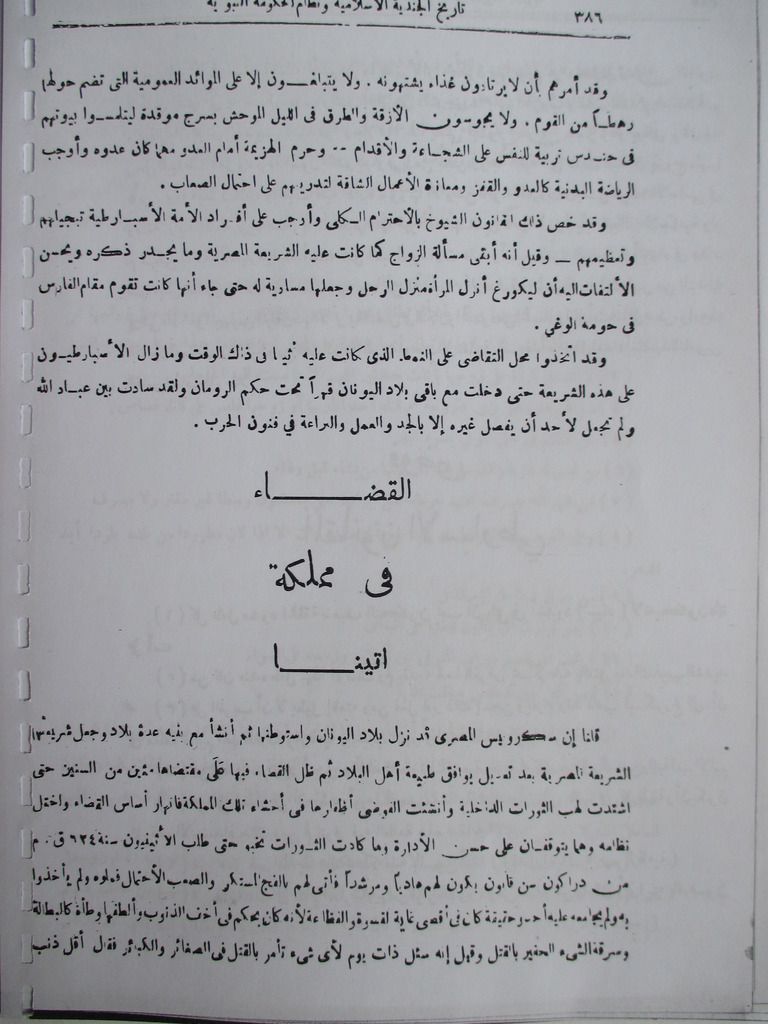 ٣٨٦
تاريخ الجندية الاسلامية ونظام الحكومة النبوية
وقد أمرهم أن لا يرتادون غذاء يشتهونه . ولا يتبلغـــون إلا على الموائد العمومية التى تضم حولها
رهطـاً من القوم . ولا يجوسون الأزقة والطرق فى الليل الموحش بسرج موقدة ليتلمسـوا بيوتهم
فى حنـدس تربية للنفس على الشجـاعة والأقدام -- وحرم الهزيمة أمام العدو مهما كان عدوه وأوجب
الرياضة البدنية كالعدو والقفز ومعاناة الأعمال الشاقة لتدريبهم على احتمال الصعاب .
وقد خص ذلك القانون الشيوخ بالاحترام الكلى وأوجب على أفـراد الأمة الأسبـارطية تبجيلهم
وتعظيمهم — وقيل أنه أبقى مسألة الزواج كما كانت عليه الشريعة المصرية وما يجـدر ذكره ويحسن
الألتفات اليه أن ليكورغ أنزل المرأة منزل الرجل وجعلها مساوية له حتى جاء أنها كانت تقوم مقام الفارس
فى حومة الوغي .
وقد اتخذوا محل التقاضى على النمط الذى كانت عليه أثينا فى ذلك الوقت وما زال الأسبارطيـون
على هذه الشريعة حتى دخلت مع باقى بلاد اليونان قهراً تحت حكم الرومان ولقد سادت بين عبـاد الله
ولم تجعل لأحد أن يفصل غيره إلا بالجد والعمل والبراعة في فنون الحرب .
القضـــــاء
فى مملكة
اتينـــــا
قلنا إن سكرويس المصرى قد نزل بلاد اليونان واستوطنها ثم أنشأ مع بقيه عدة بلاد وجعل شريعتها
الشريعة المصرية بعد تعديل يوافق طبيعة أهل البلاد ثم ظل القضاء فيها على مقتضاها مئين من السنين حتى
اشتدت لهب الثورات الداخلية وأنشئت الفوضى أظفارها فى أحشاء تلك المملكة فانهار أساس القضاء واختل
نظامه وهما يتوقفـان على حسن الأدارة وما كادت الثـورات تخبو حتى طلب الأثينيون سنة ٦٢٤ ق . م
من دراكون سن قانون يكون لهم هادياً ومرشداً فأتى لهم بالفج المستنكر والصعب الأحتمال فملوه ولم يأخذوا
به ولم يجامعه عليه أحد وحقيقة كان فى أقصى غاية لقسوة والفظاعة لأنه كان يحكم فى أخف الذنوب وألطفها وطأة كالبطالة
وسرقة الشىء الحقير بالقتل وقيل إنه سئل ذات يوم لأى شىء تأمر بالقتل فى الصغائر والكبائر فقال أقل ذنب